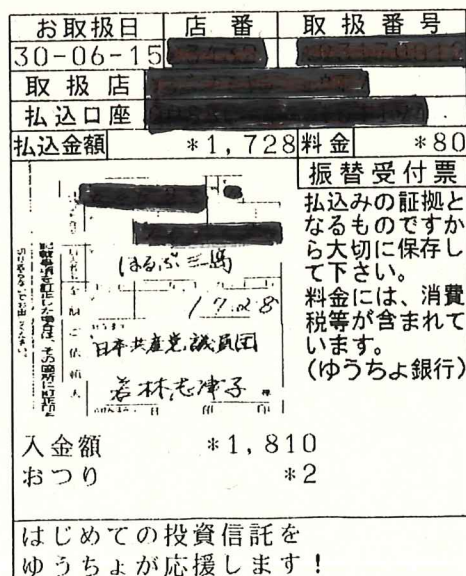 お取扱日 店番 取扱番号
30-06-15
取扱店
払込口座
払込金額 *1,728 料金 *80
振替受付票
払込みの証拠と
なるものですか
ら大切に保存し
て下さい。
料金には、消費
税等が含まれて
います。
(ゆうちょ銀行)
はるぶ三島
1728
日本共産党議員団
若林志津子 様
入金額 *1,810
おつり *2
はじめての投資信託を
ゆうちょが応援します!